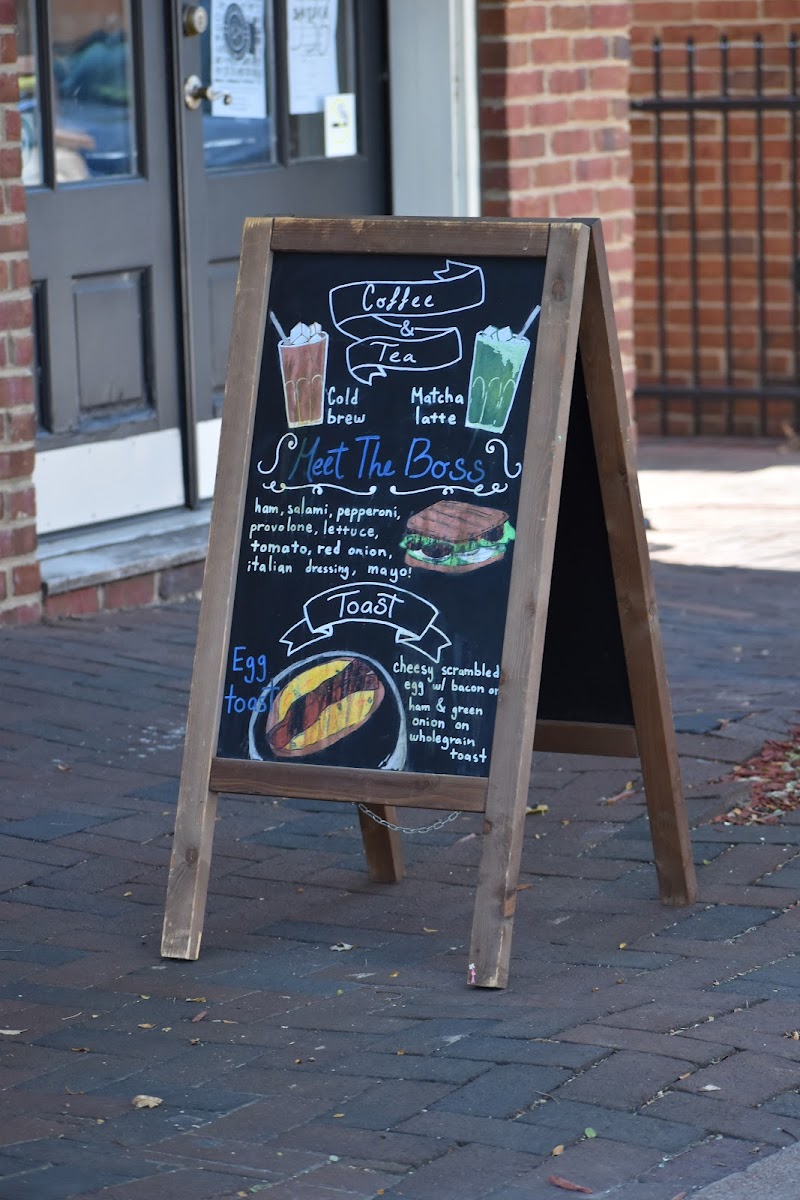 Coffee
&
Tea
Cold
brew
Matcha
latte
Meet The Boss
ham, salami, pepperoni,
provolone, lettuce,
tomato, red onion,
italian dressing, mayo!
Toast
Egg
toast
cheesy scrambled
egg w/ bacon or
ham & green
onion on
wholegrain
toast